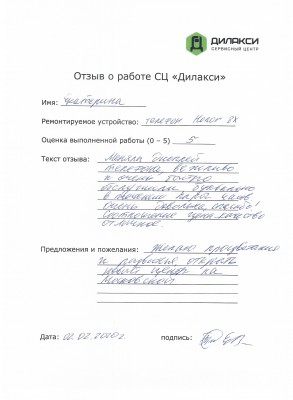 ДИЛАКСИ
СЕРВИСНЫЙ ЦЕНТР
Отзыв о работе СЦ «Дилакси»
Имя: Екатерина
Ремонтируемое устройство: телефон Honor 8X
Оценка выполненной работы (0 – 5) 5
Текст отзыва: Меняла дисплей
телефона, вежливо
и очень быстро
обслужили, буквально
в течение пары часов.
Очень довольна, спасибо!
Соотношение цена-качество
отличное.
Предложения и пожелания: желаю процветания
и развития, открыть
новый центр на
Московской
Дата: 02.02.2020г. подпись: